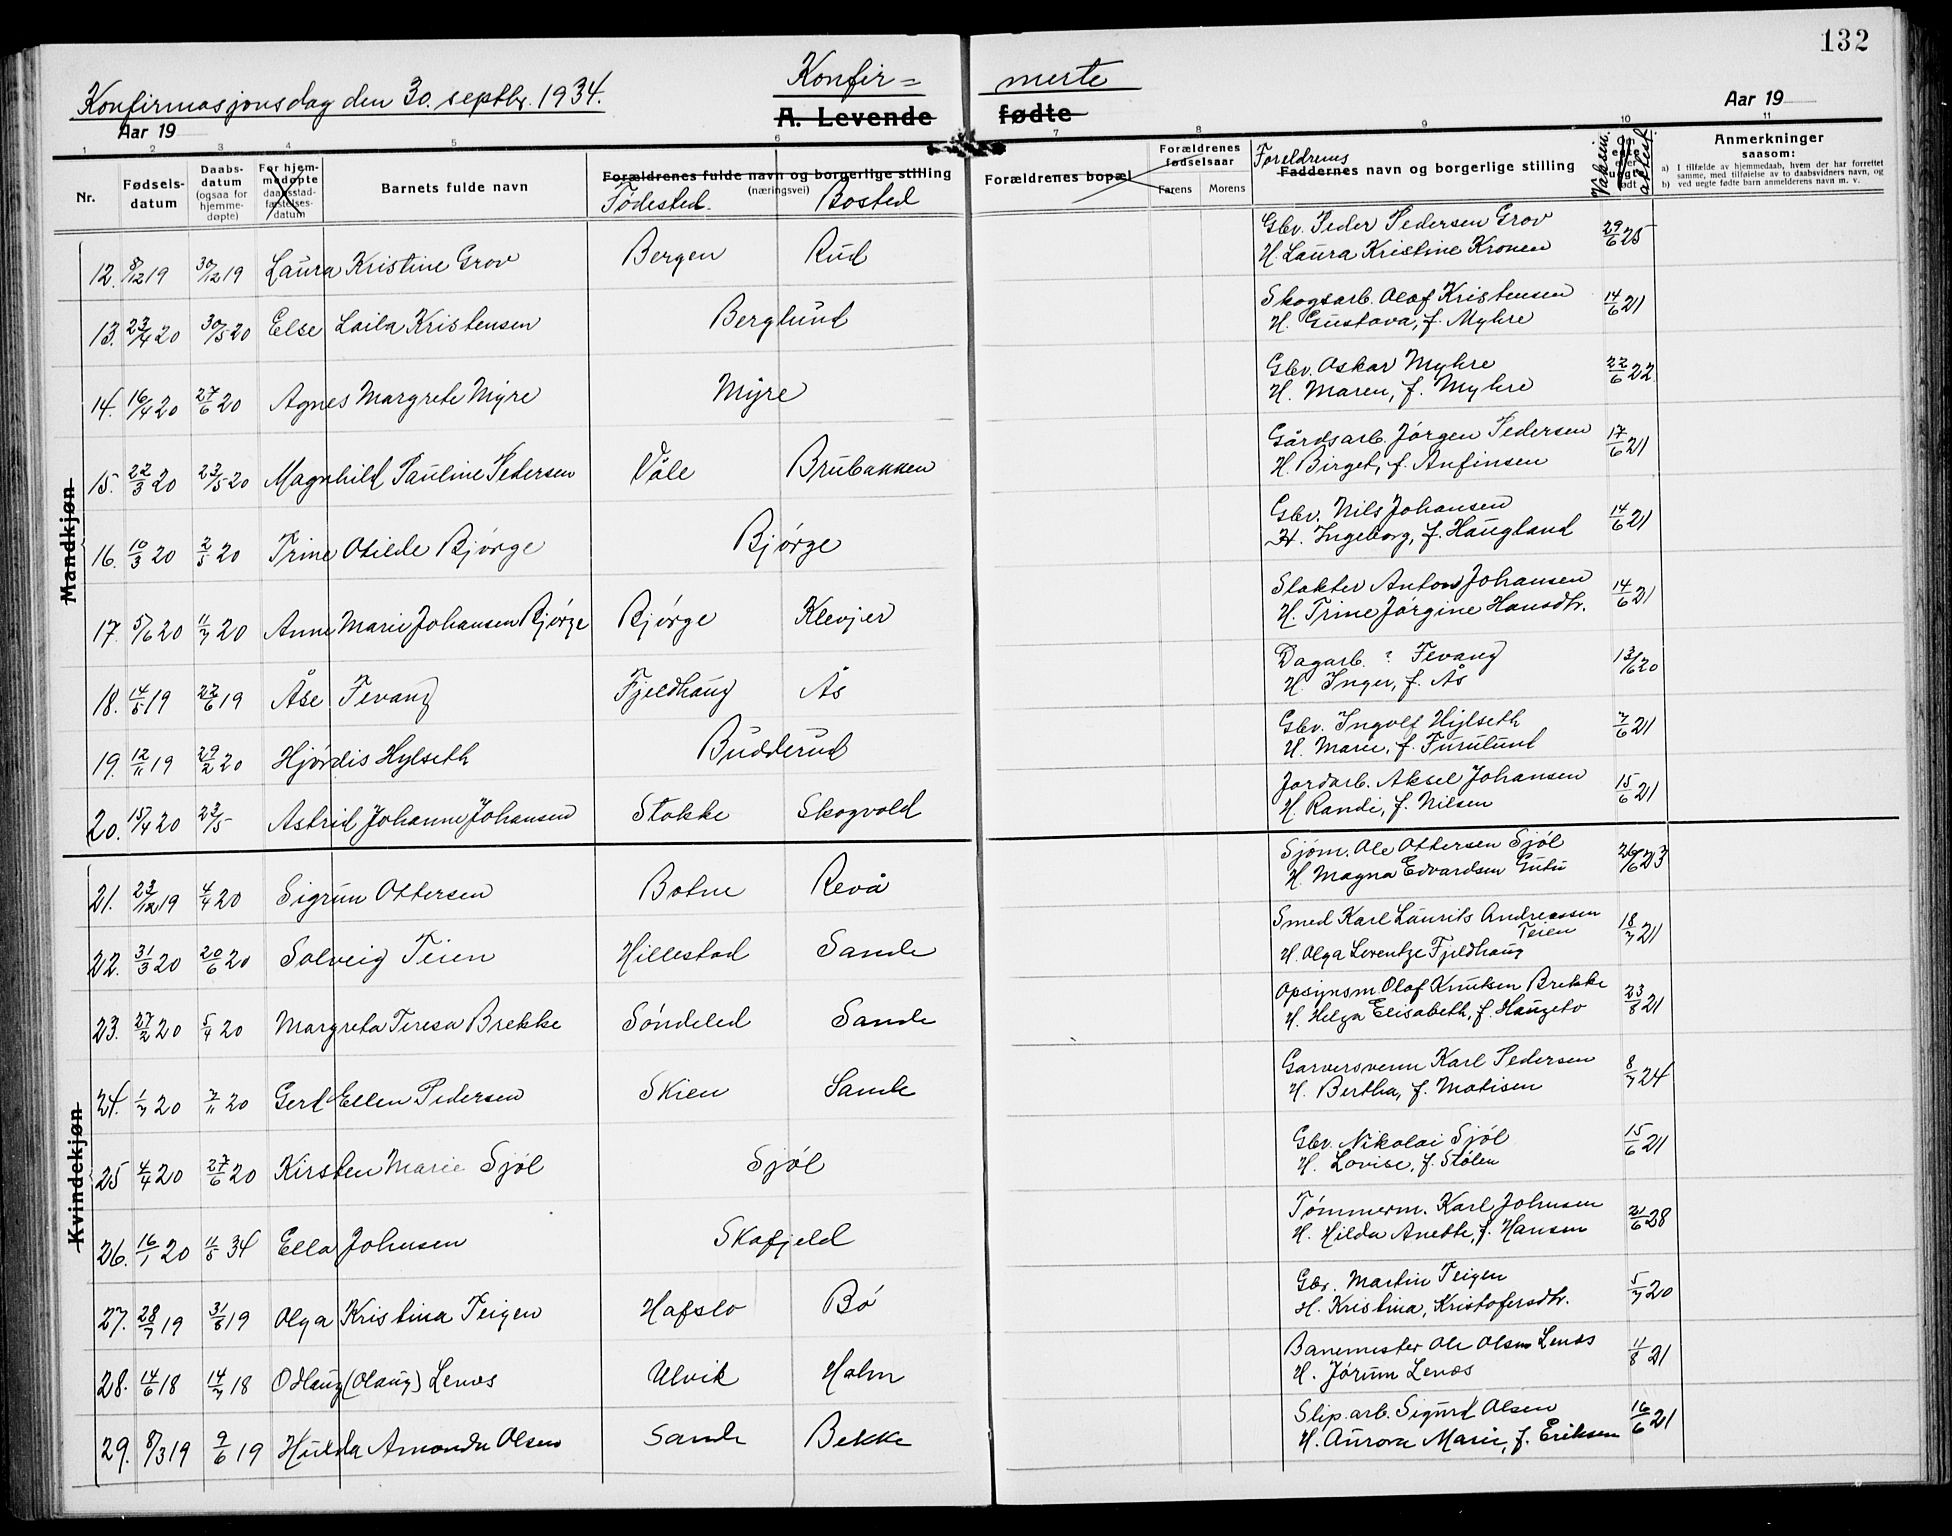 132
Konfirmasjonsdag den 30. septbr. 1934.
Konfir= merte
A. Levende fødte
Aar 19
Aar 19
1 2 3 4 5 6 7 8 9 10 11
Nr. Fødsels-datum Daabs-datum (ogsaa for hjemme-døpte) For hjem-medøpte daabsstad-fæstelses-datum Barnets fulde navn Forældrenes fulde navn og borgerlige stilling (næringsvei) Fødested. Bosted Forældrenes bopæl Forældrenes fødselsaar Farens Morens Foreldrenes Faddernes navn og borgerlige stilling Vaksin. attest Anmerkninger saasom:
a) I tilfælde av hjemmedaab, hvem der har forrettet samme, med tilføielse av to daabsvidners navn, og
b) ved uegte fødte barn anmelderens navn m. v.
Mandkjøn
12. 8/12 19 30/12 19 Laura Kristine Grov Bergen Rud Gbr. Peder Pedersen Grov
H. Laura Kristine Kronen 29/6 25
13. 23/4 20 30/5 20 Else Laila Kristensen Berglund Skogsarb. Olaf Kristensen
H. Gustava, f. Myhre 14/6 21
14. 16/4 20 27/6 20 Agnes Margrete Myre Myre Gbr. Oskar Myhre
H. Maren, f. Myhre 22/6 22
15. 22/3 20 23/5 20 Magnhild Pauline Pedersen Våle Brubakken Gårdsarb. Jørgen Pedersen
H. Birget, f. Anfinsen 17/6 21
16. 10/3 20 2/5 20 Trine Otilde Bjørge Bjørge Gbr. Nils Johansen
H. Ingeborg, f. Haugland 14/6 21
17. 5/6 20 11/7 20 Anne Marie Johansen Bjørge Bjørge Klevjer Slakter Anton Johansen
H. Trine Jørgine Hansdtr. 14/6 21
18. 14/5 19 22/6 19 Åse Fevang Fjeldhaug Ås Dagarb. ? Fevang
H. Inger, f. Ås 13/6 20
19. 12/11 19 29/2 20 Hjørdis Hylseth Budderud Gbr. Ingolf Hylseth
H. Marie, f. Furulund 7/6 21
20. 15/4 20 23/5 Astrid Johanne Johansen Stokke Skogvold Jordarb. Aksel Johansen
H. Randi, f. Nilsen 15/6 21
Kvindekjøn
21. 23/12 19 4/4 20 Sigrun Ottersen Botne Revå Sjøm. Ole Ottersen Sjøl
H. Magna Edvardsen Gutu 26/6 23
22. 31/3 20 20/6 20 Solveig Teien Hillestad Sande Smed Karl Laurits Andreassen Teien
H. Olga Lorentze Fjeldhaug 18/7 21
23. 27/2 20 5/4 20 Margreta Teresa Brekke Søndeled Sande Opsynsm. Olaf Knutsen Brekke
H. Helga Elisabeth, f. Haugeto 23/8 21
24. 1/7 20 7/11 20 Gerd Ellen Pedersen Skien Sande Garversvenn Karl Pedersen
H. Bertha, f. Matisen 8/7 24
25 4/4 20 27/6 20 Kirsten Marie Sjøl Sjøl Gbr. Nikolai Sjøl
H. Lovise, f. Stølen 15/6 21
26. 16/1 20 11/5 34 Ella Johnsen Skafjeld Tømmerm. Karl Johnsen
H. Hilda Anette, f. Hansen 21/6 28
27. 28/7 19 31/8 19 Olga Kristina Teigen Hafslo Bø Gbr. Martin Teigen
H. Kristina, Kristofersdtr. 5/7 20
28. 14/6 18 14/7 18 Odlaug (Olaug) Lenæs Ulvik Holm Banemester Ole Olsen Lenæs
H. Jorum Lenæs 11/8 21
29. 8/3 19 9/6 19 Hulda Amanda Olsen Sande Bekke Slip. arb. Sigurd Olsen
H. Aurora Marie, f. Eriksen 16/6 21